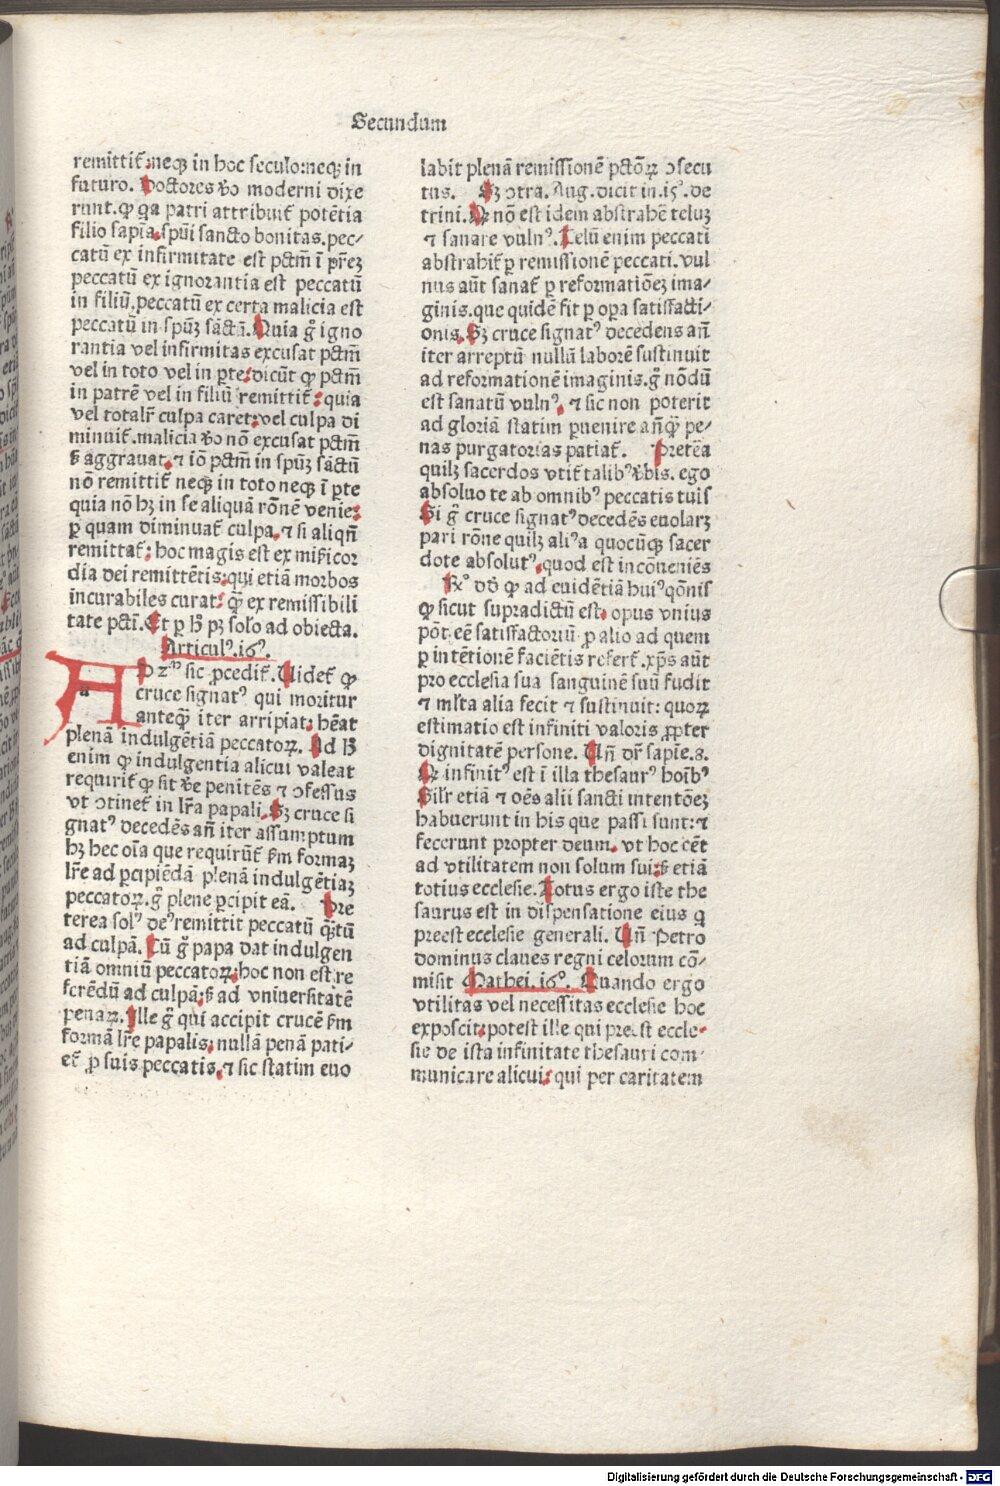 Secundum
remittit᷑:neqꝫ in hoc seculo:neqꝫ in
futuro. Doctores v̄o moderni dixe
runt. ꝙ qa patri attribuit᷑ potētia
filio sapīa.spūi sancto bonitas.pec⸗
catū ex infirmitate est pctm̄ ī pr̄eꝫ
peccatū ex ignorantia est peccatū
in filiū.peccatū ex certa malicia est
peccatū in spūꝫ sāctā. Quia g̊ igno
rantia vel infirmitas excusat pctm̄
vel in toto vel in ꝑte: dicūt ꝙ pctm̄
in patrē vel in filiū remittit᷑: quia
vel totalr̄ culpa caret:vel culpa di
minuit᷑.malicia v̄o nō excusat pctm̄
ẜ aggrauat. ⁊ iō pctm̄ in spūꝫ sāctū
nō remittit᷑ neqꝫ in toto neqꝫ ī ꝑte
quia nō hꝫ in se aliquā rōnē venie:
ꝑ quam diminuat᷑ culpa. ⁊ si aliqn̄
remittat᷑: hoc magis est ex mīẜicor
dia dei remittētis: qui etiā morbos
incurabiles curat: q̄ꝫ ex remissibili
tate pctī. Et ꝑ hͦ pꝫ solo ad obiecta.
Articulꝰ.16ꝰ.
AD 2ᵐ sic ꝓcedit᷑. Uidet᷑ ꝙ
a
cruce signatꝰ qui moritur
anteqꝫ̄ iter arripiat: hēat
plenā indulgētiā peccatoꝝ. Ad hͦ
enim ꝙ indulgentia alicui valeat
requirit᷑ ꝙ sit v̄e penitēs ⁊ ↄfessus
vt ↄtinet᷑ in lr̄a papali. Sꝫ cruce si
gnatꝰ decedēs an̄ iter assumptum
hꝫ hec oīa que requirūt᷑ ẜm formaꝫ
lr̄e ad ꝑcipiēdā plenā indulgētiaꝫ
peccatoꝝ. g̊ plene ꝑcipit eā. Pre
terea solꝰ deꝰ remittit peccatū q̄ꝫtū
ad culpā. Cū g̊ papa dat indulgen
tiā omniū peccatoꝝ: hoc non est re
ferēdū ad culpā: ẜ ad vniuersitatē
penaꝝ. Ille g̊ qui accipit crucē ẜm
formā lr̄e papalis: nullā penā pati⸗
et᷑ ꝓ suis peccatis. ⁊ sic statim euo
labit plenā remissionē pctōꝝ ↄsecu
tus. Sꝫ ↄtra. Aug. dicit in.15ͦ. de
trini. Qꝛ nō est idem abstrahē teluꝫ
⁊ sanare vulnꝰ. Telū enim peccati
abstrahit᷑ ꝑ remissionē peccati. vul
nus aūt sanat᷑ ꝑ reformatiōeꝫ ima⸗
ginis. que quidē fit ꝑ opa satisfacti⸗
onis. Sꝫ cruce signatꝰ decedens an̄
iter arreptū nullā laborē sustinuit
ad reformationē imaginis. g̊ nōdū
est sanatū vulnꝰ. ⁊ sic non poterit
ad gloriā statim ꝑuenire an̄qꝫ̄ pe⸗
nas purgatorias patiat᷑. Pretēa
quilꝫ sacerdos vtit᷑ talibꝰ v̄bis. ego
absoluo te ab omnibꝰ peccatis tuis
Si g̊ cruce signatꝰ decedēs euolaꝝ
pari rōne quilꝫ aliꝰa quocūqꝫ sacer
dote absolutꝰ. quod est incōueniēs
Rͦ dō ꝙ ad euidētiā huiꝰ qōnis
ꝙ sicut supradictū est. opus vnius
pōt eē satisfactoriū ꝓ alio ad quem
ꝑ intētionē faciētis refert᷑. xp̄s aūt
pro ecclesia sua sanguinē suū fudit
⁊ ml̄ta alia fecit ⁊ sustinuit: quoꝝ
estimatio est infiniti valoris ꝓpter
dignitatē persone. Un̄ dr̄ sapīe.8.
Qꝛ infinitꝰ est ī illa thesaurꝰ hoībꝰ
Silr̄ etiā ⁊ oēs alii sancti intentōeꝫ
habuerunt in his que passi sunt: ⁊
fecerunt propter deum. vt hoc cēt
ad vtilitatem non solum sui: ẜ etiā
totius ecclesie. Totus ergo iste the
saurus est in dispensatione eius q̇
preest ecclesie generali. Un̄ Petro
dominus claues regni celorum cō⸗
misit Mathei. 16ͦ. Quando ergo
vtilitas vel necessitas ecclesie hoc
exposcit: potest ille qui preest eccle⸗
sie de ista infinitate thesauri com⸗
municare alicui: qui per caritatem
Digitalisierung gefördert durch die Deutsche Forschungsgemeinschaft - DFG